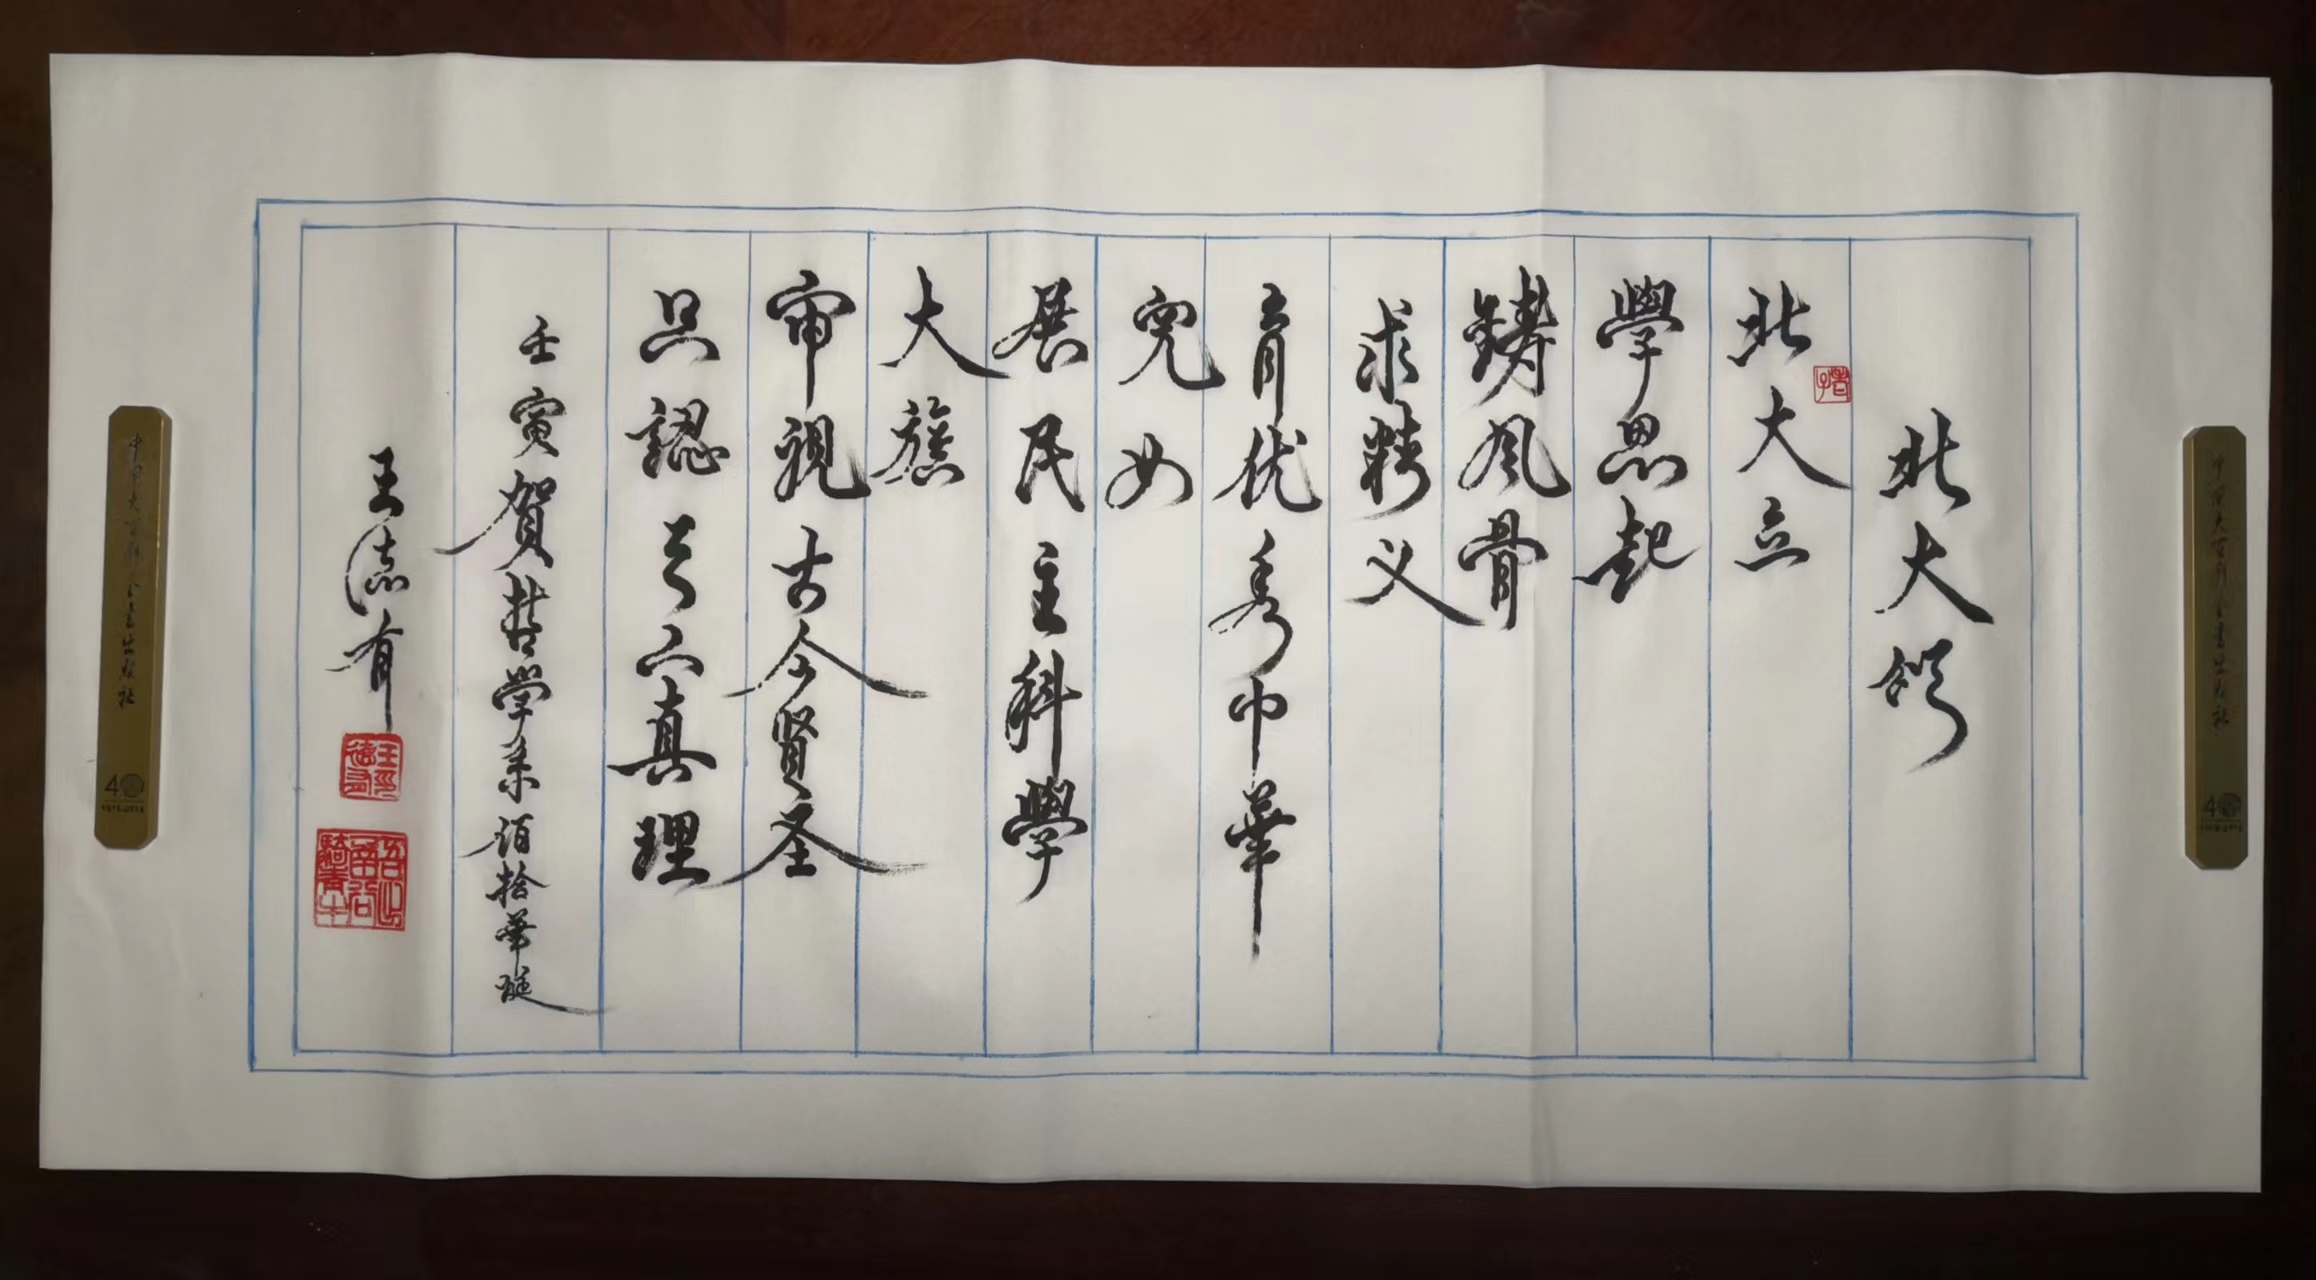 北大颂
北大立
學思起
鑄风骨
求精义
育优秀中華
兒女
展民主科學
大旗
审视古今贤圣
只認天下真理
壬寅贺哲学系佰拾華诞
王德有